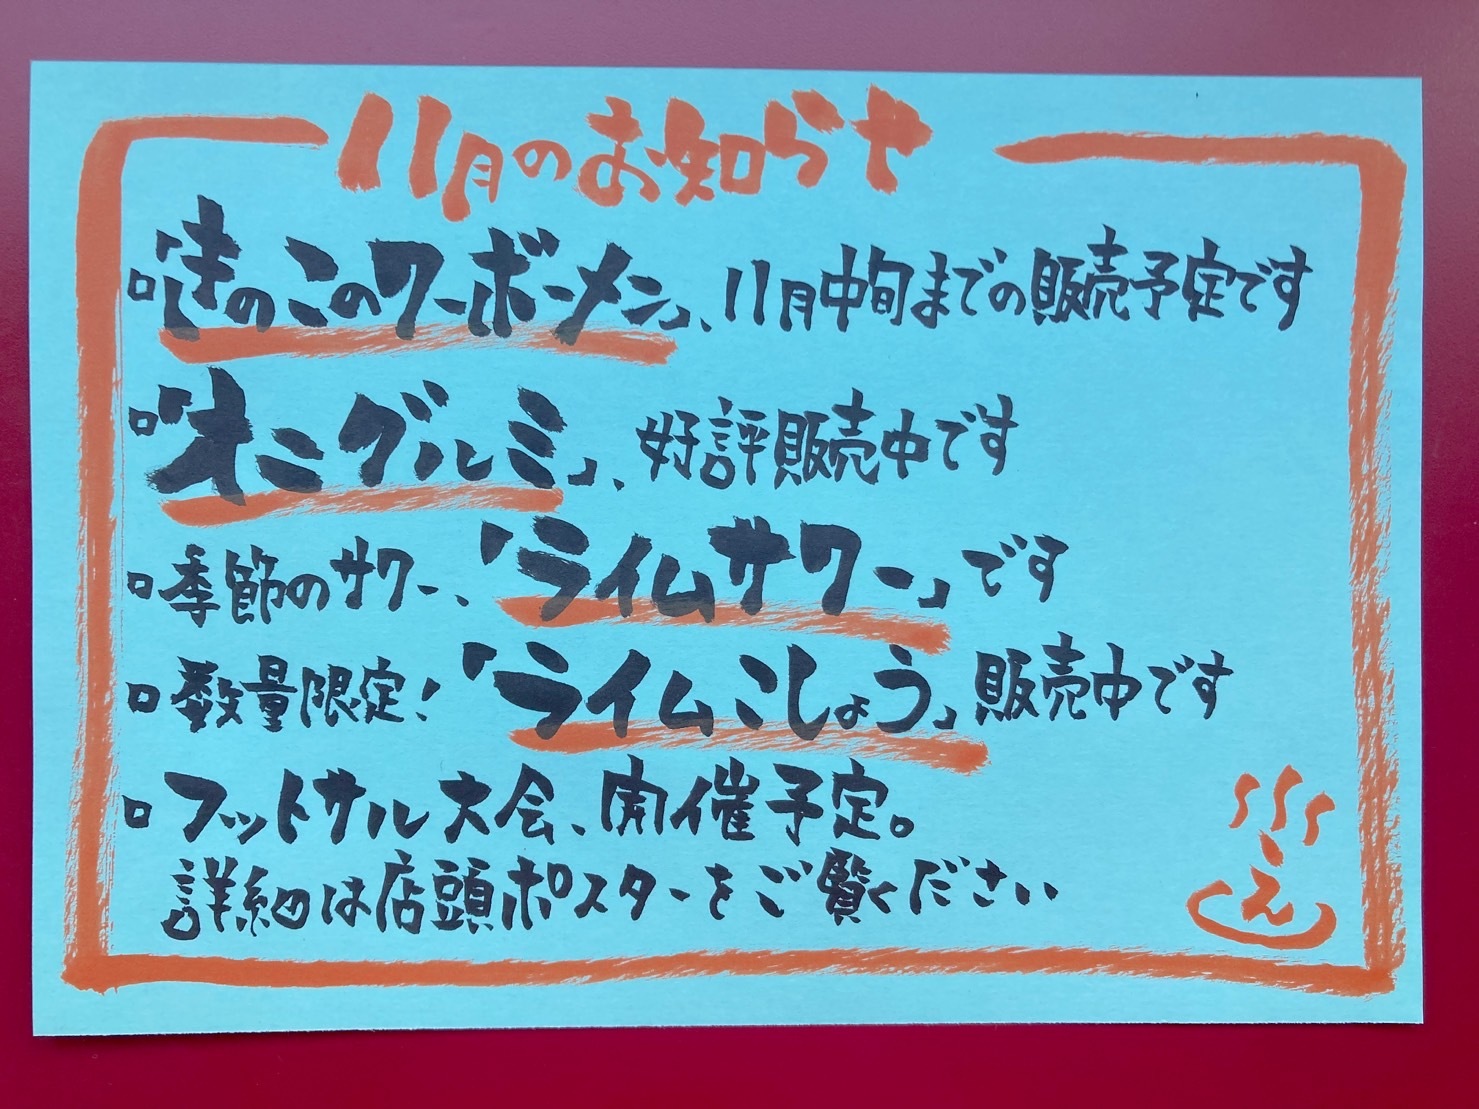 11月のお知らせ
□「きのこのワーボーメン」、11月中旬までの販売予定です
□「オニグルミ」、好評販売中です
□季節のサワー、「ライムサワー」です
□数量限定！「ライムこしょう」販売中です
□フットサル大会、開催予定。
詳細は店頭ポスターをご覧ください
え